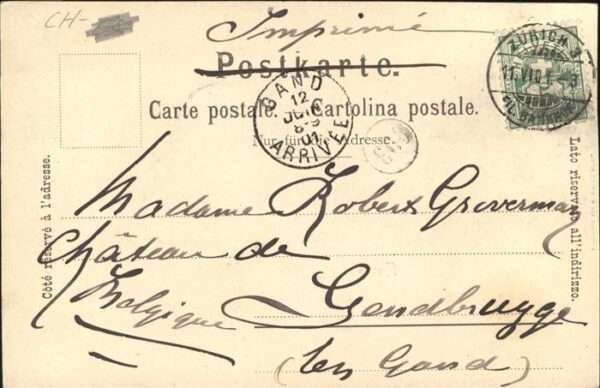 CH-
Imprimé
Postkarte.
Carte postale. Cartolina postale.
Nur für die Adresse.
Côté réservé à l'adresse.
Lato riservato all'indirizzo.
ZÜRICH
GAND
12
JUIN
8-9
01
ARRIVÉE
Madame Robert Greverman
Château de
Gendbrugge
Belgique
(lez Gand)